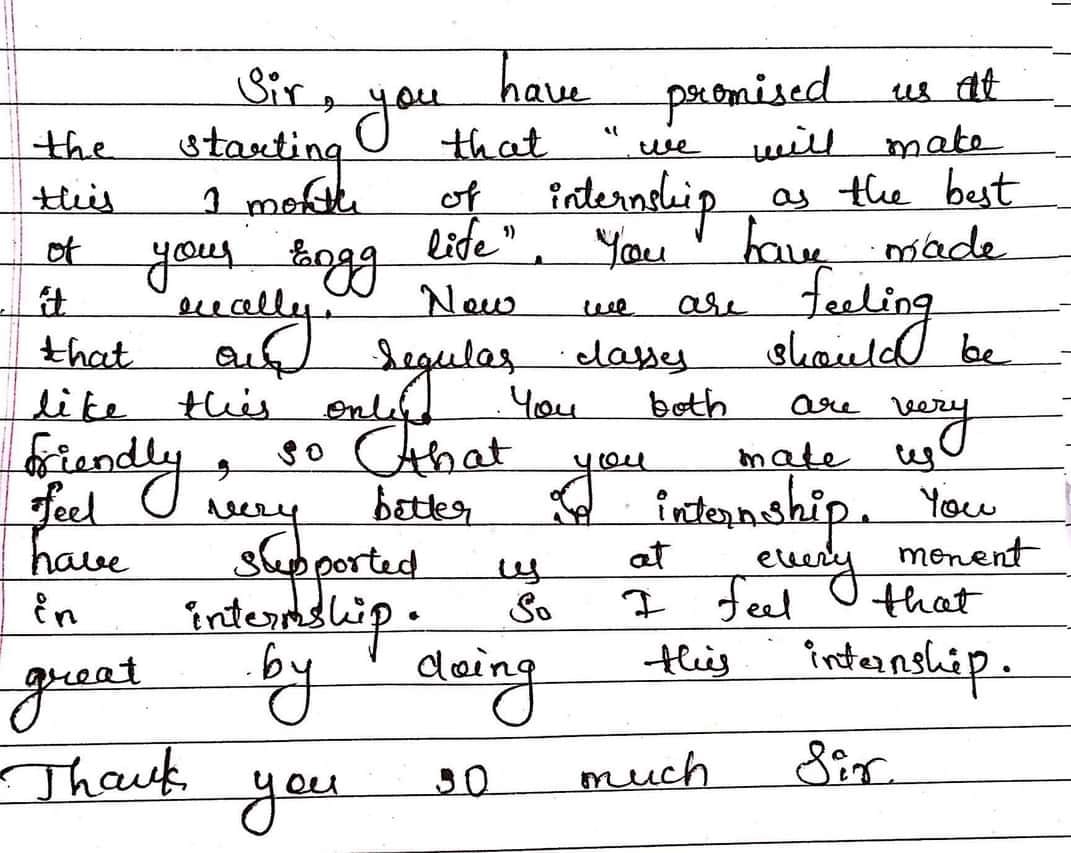 Sir, you have promised us at
the starting that "we will make
this 1 month of internship as the best
of your Engg life". You have made
it really. Now we are feeling
that our regular classes should be
like this only. You both are very
friendly, so that you make us
feel very better in internship. You
have supported us at every monent
in internship. So I feel that
great by doing this internship.
Thank you so much Sir.